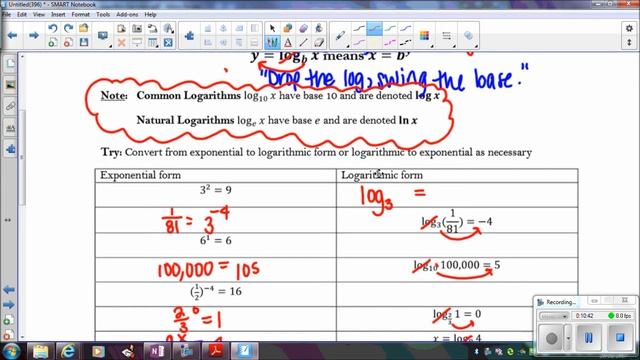 Untitled(396) * - SMART Notebook
File Edit View Insert Format Tools Add-ons Response Help
y = log_b x means x = b^y
"Drop the log, swing the base."
Note: Common Logarithms log₁₀ x have base 10 and are denoted log x
Natural Logarithms logₑ x have base e and are denoted ln x
Try: Convert from exponential to logarithmic form or logarithmic to exponential as necessary
Exponential form Logarithmic form
3² = 9 log₃ =
1/81 = 3⁻⁴ log₃(1/81) = −4
6¹ = 6
100,000 = 105 log₁₀ 100,000 = 5
(1/2)⁻⁴ = 16
2/3⁰ = 1 log_{2/3} 1 = 0
x = log 4
Recording...
0:10:42 8.0 fps